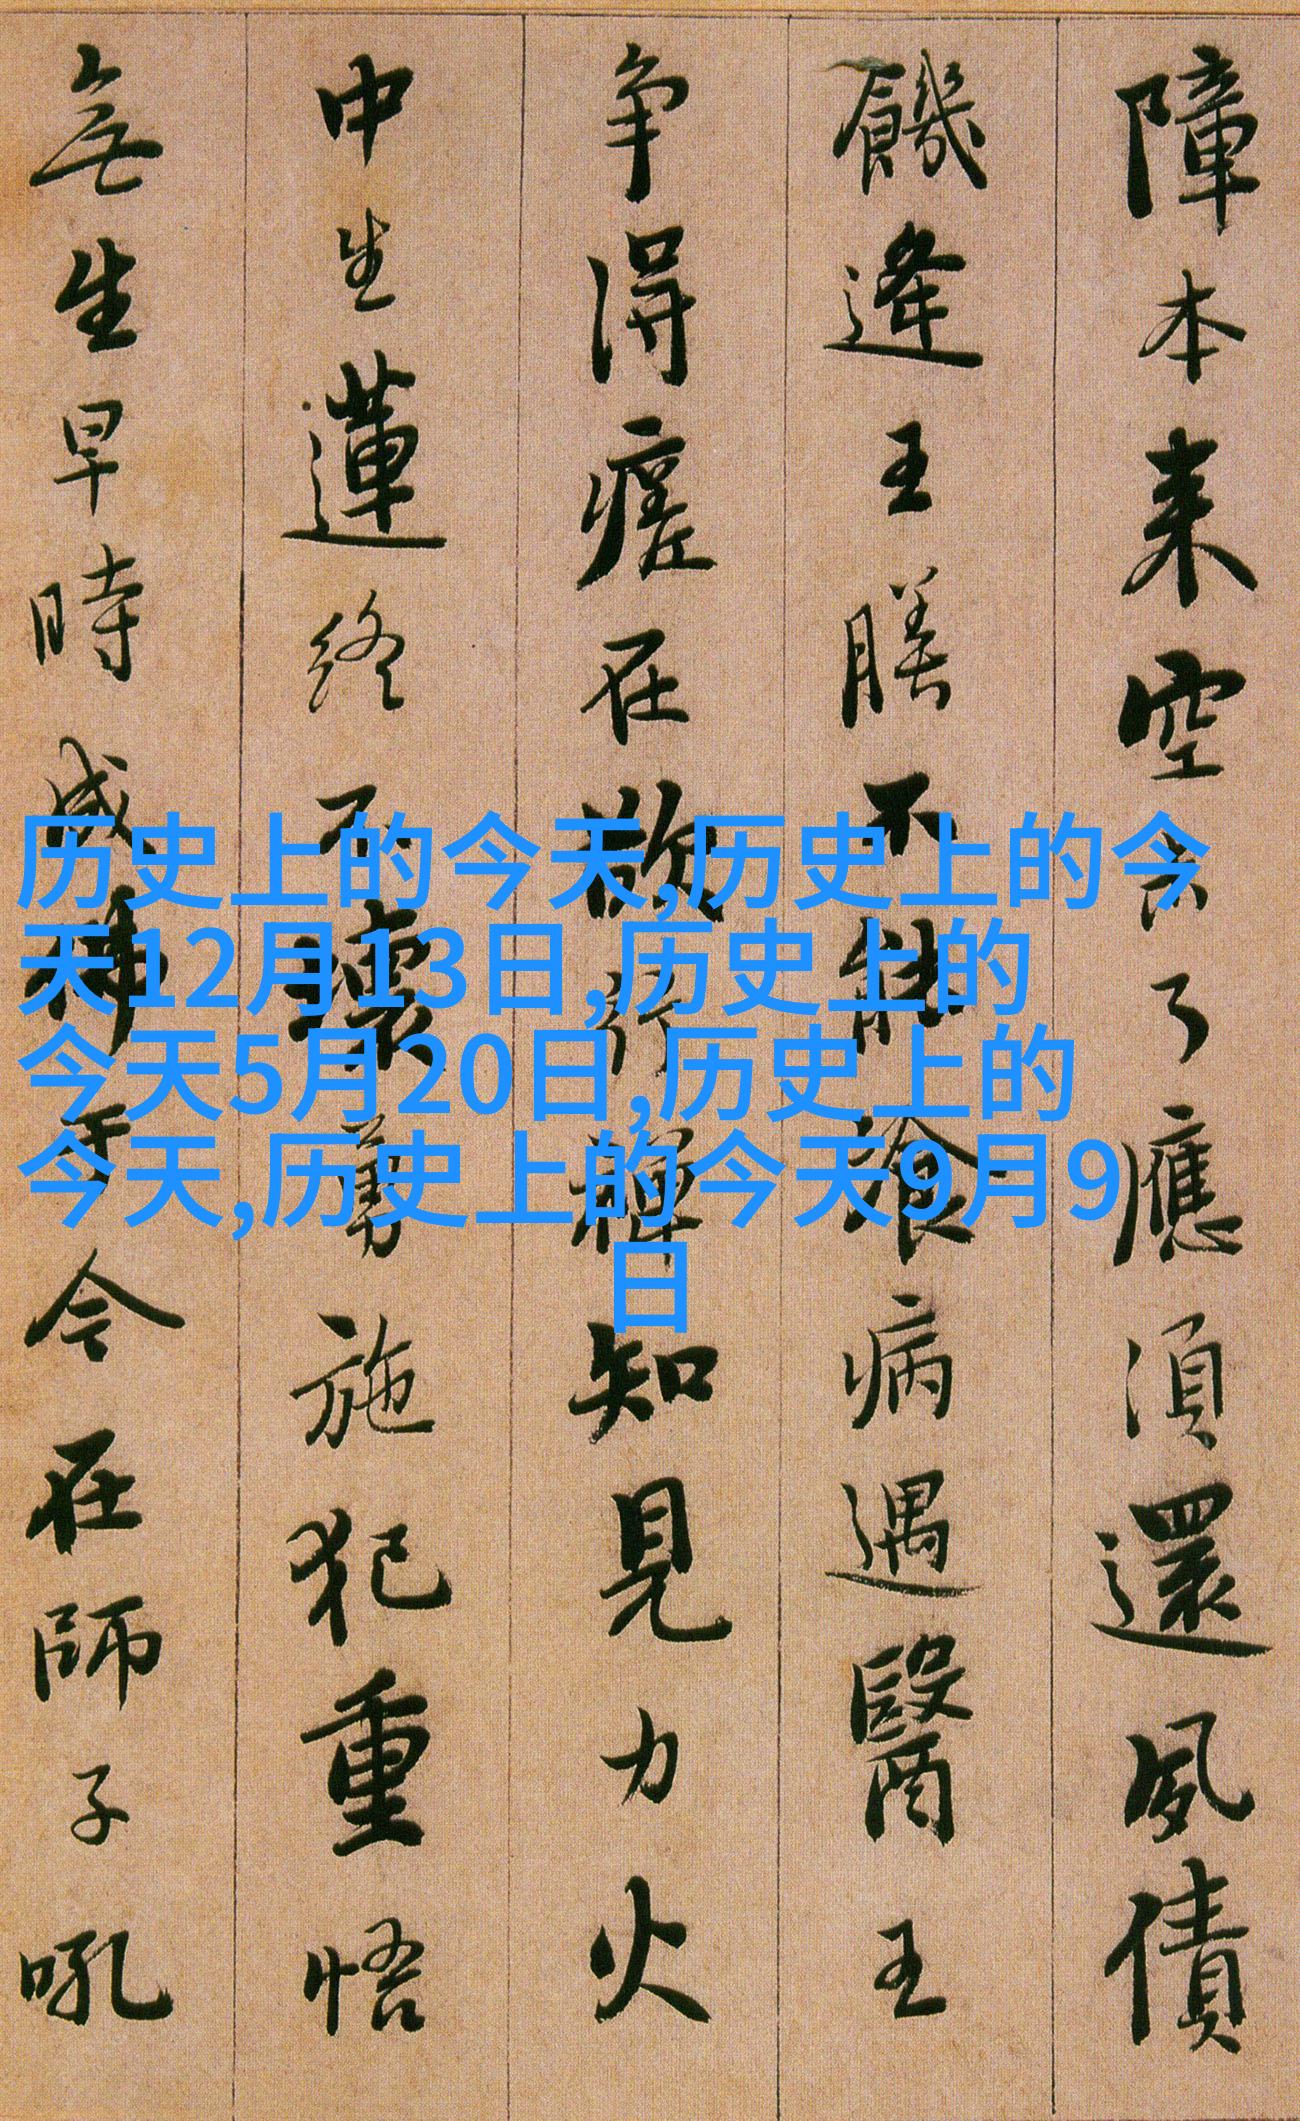 障本来空未了應須還夙債
饑逢王膳不能飡病遇醫王
争得瘥在欲行禪知見力火
中生蓮終不壞勇施犯重悟
無生早時成佛于今在師子吼
历史上的今天,历史上的今
天12月13日,历史上的
今天5月20日,历史上的
今天,历史上的今天9月9
日